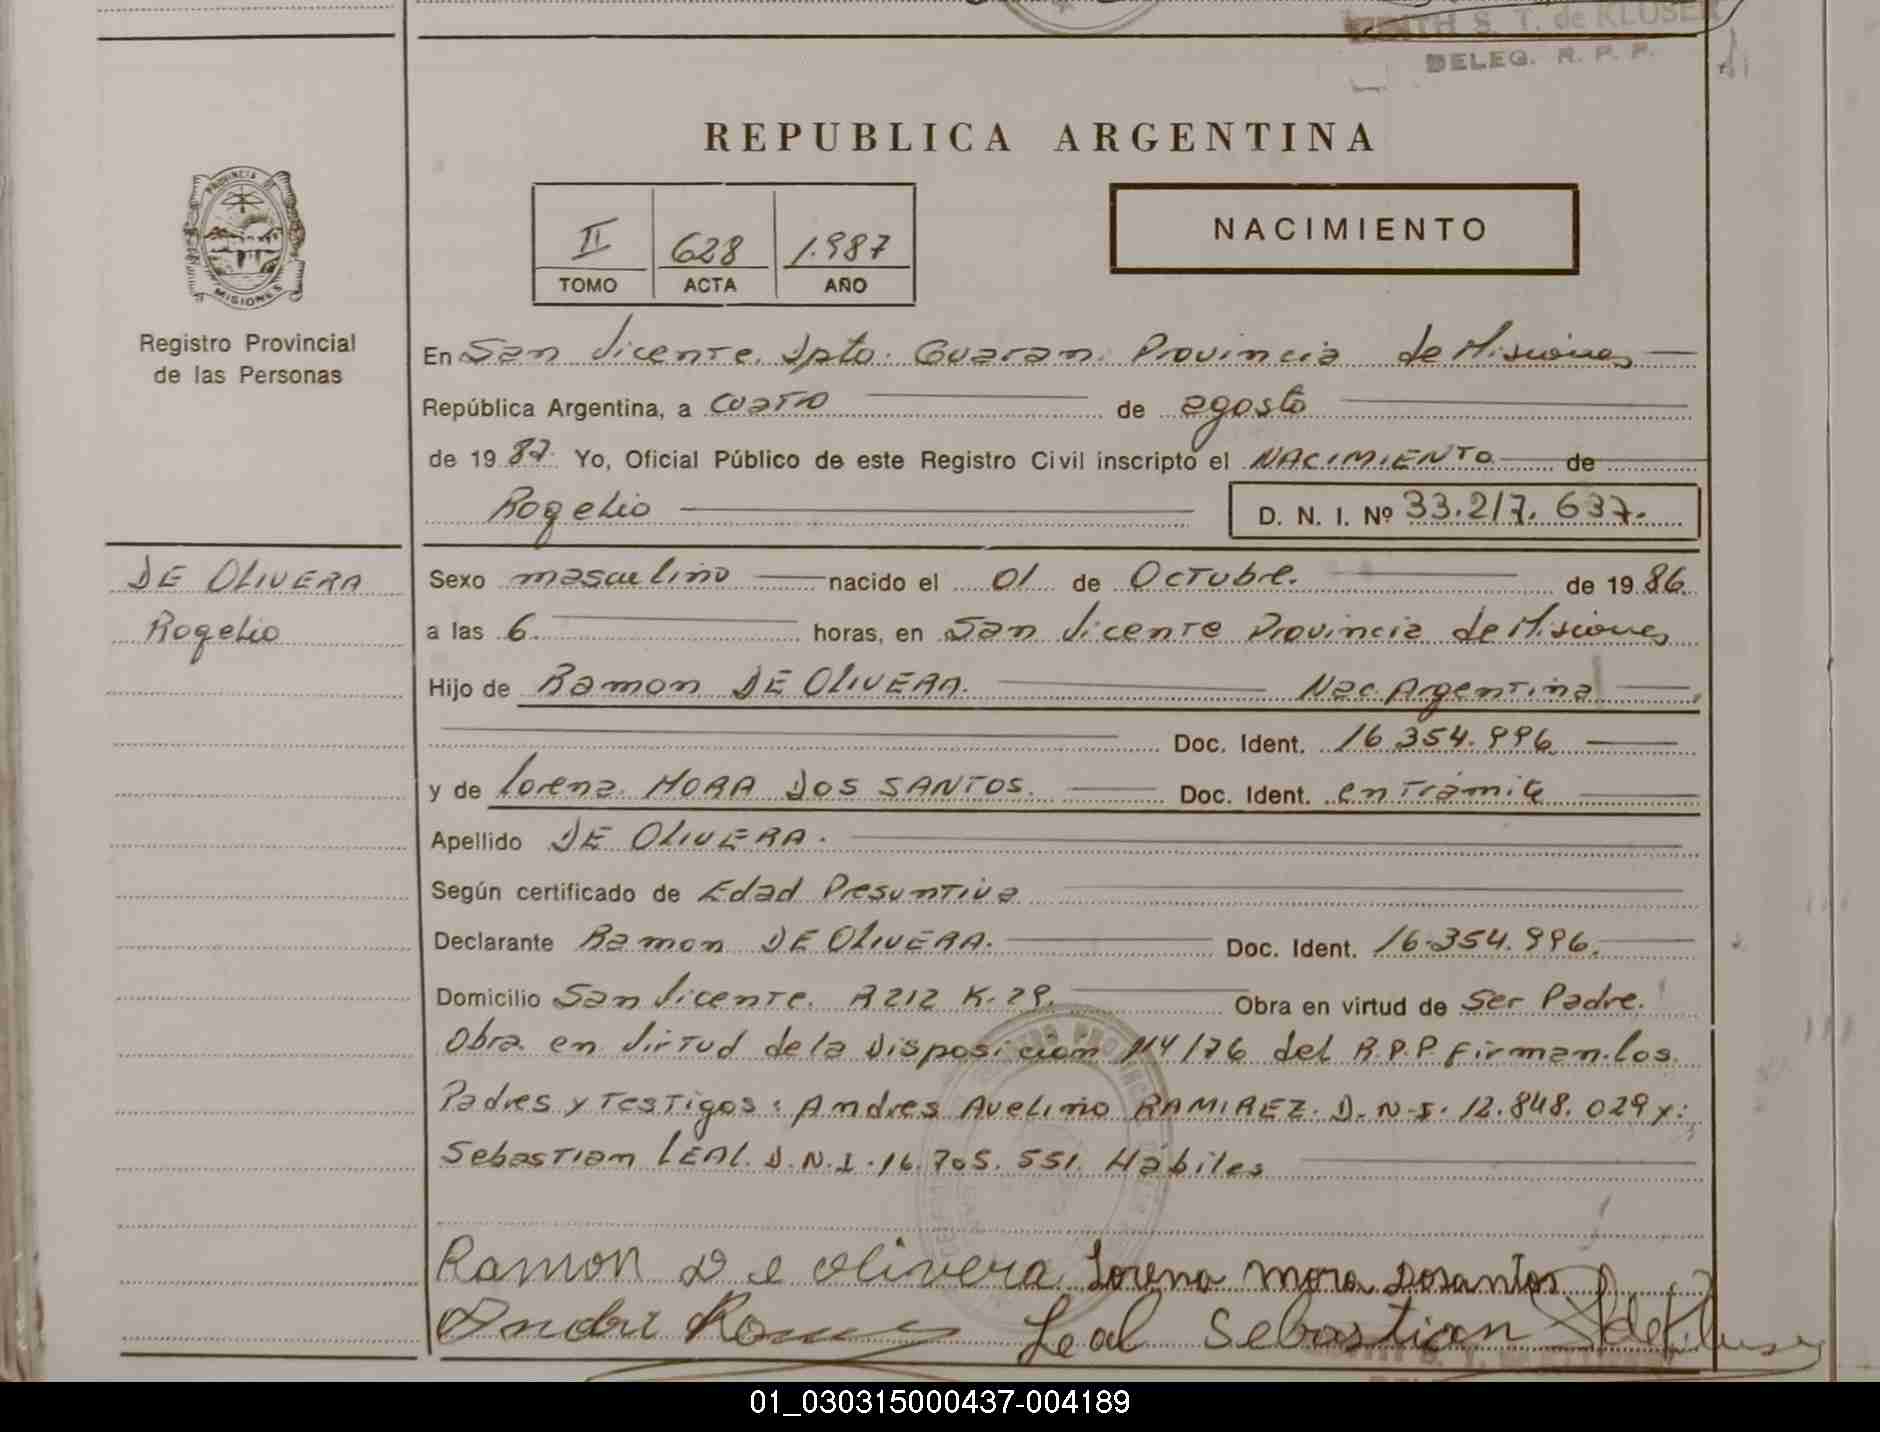 DELEG. R. P. P.
REPUBLICA ARGENTINA
NACIMIENTO
II 628 1.987
TOMO ACTA AÑO
PROVINCIA DE
MISIONES
Registro Provincial
de las Personas
En San Vicente. Dpto. Guaran. Provincia de Misiones
República Argentina, a cuatro de agosto
de 19 87. Yo, Oficial Público de este Registro Civil inscripto el NACIMIENTO de
Rogelio D. N. I. Nº 33.217.637.
DE OLIVERA
Rogelio
Sexo masculino nacido el 01 de Octubre. de 19 86.
a las 6. horas, en San Vicente Provincia de Misiones
Hijo de Ramon DE OLIVERA. Nac. Argentina
Doc. Ident. 16.354.996
y de Lorena MORA DOS SANTOS. Doc. Ident. en Trámite
Apellido DE OLIVERA.
Según certificado de Edad Presuntiva
Declarante Ramon DE OLIVERA. Doc. Ident. 16.354.996.
Domicilio San Vicente. R 212 K. 29. Obra en virtud de Ser Padre.
Obra en Virtud de la Disposicion 114/76 del R.P.P. Firman los
Padres y Testigos: Andres Avelino RAMIREZ. D.N.I. 12.848.029 y:
Sebastian LEAL. D.N.I. 16.705.551. Hábiles
Ramon De Olivera Lorena mora Dosantos
Leal Sebastian
01_030315000437-004189